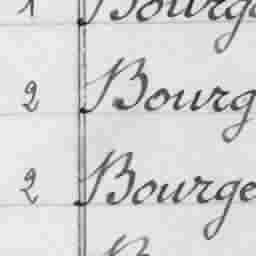 1 Bourg
2 Bourg
2 Bourge